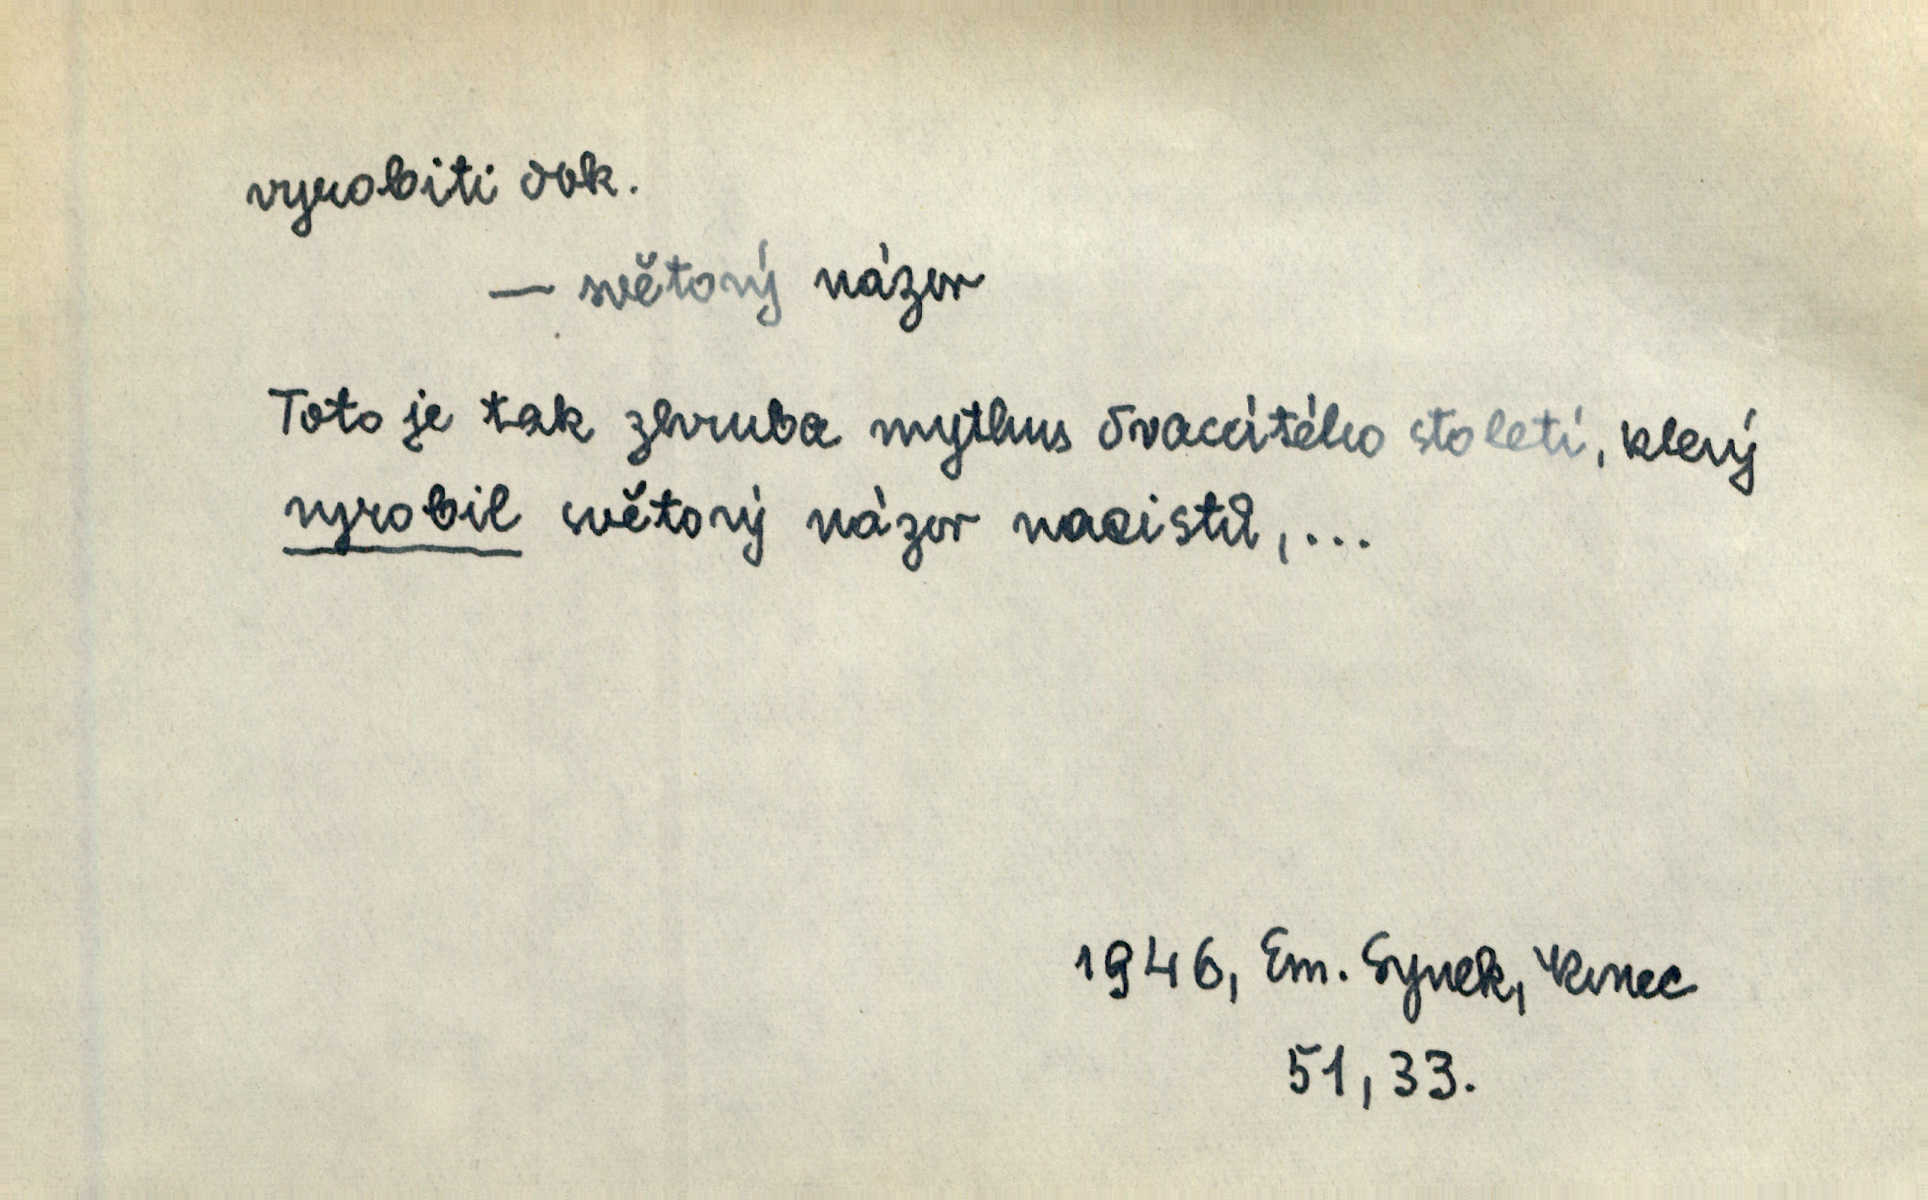 vyrobiti dok.
— světový názor
Toto je tak zhruba mythus dvacátého století, který
vyrobil světový názor nacistů, ...
1946, Em. Synek, Konec
51, 33.